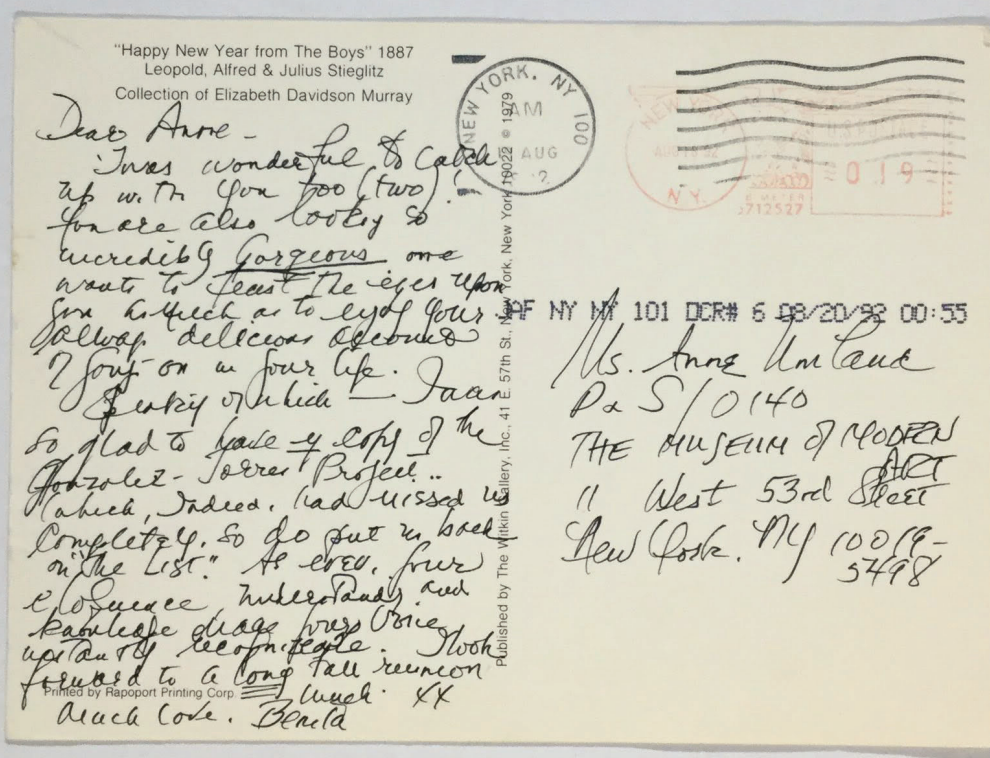 "Happy New Year from The Boys" 1887
Leopold, Alfred & Julius Stieglitz
Collection of Elizabeth Davidson Murray
Dear Anne -
'Twas wonderful to catch
up with you too (two)!
You are also looking so
incredibly Gorgeous one
wants to feast the eyes upon
you as much as to enjoy your
always delicious accounts
of going on in your life.
Speaking of which — I am
so glad to have a copy of the
Gonzalez-Torres Project..
which, indeed, had missed us
completely. So do put us back
on "the List." As ever, your
eloquence, understanding and
knowledge make your voice
instantly recognizable. I look
forward to a long Fall reunion
lunch. XX
Much Love. Benita
Printed by Rapoport Printing Corp.
Published by The Witkin Gallery, Inc., 41 E. 57th St., New York, New York 10022 © 1979
NEW YORK, NY 100
AM
AUG
NEW YORK
N.Y.
U.S. POSTAGE
0.19
METER
712527
JAF NY NY 101 DCR# 6 08/20/92 00:55
Ms. Anne Umland
P & S / 0140
THE MUSEUM of MODERN
ART
11 West 53rd Street
New York. NY 10019-
5498